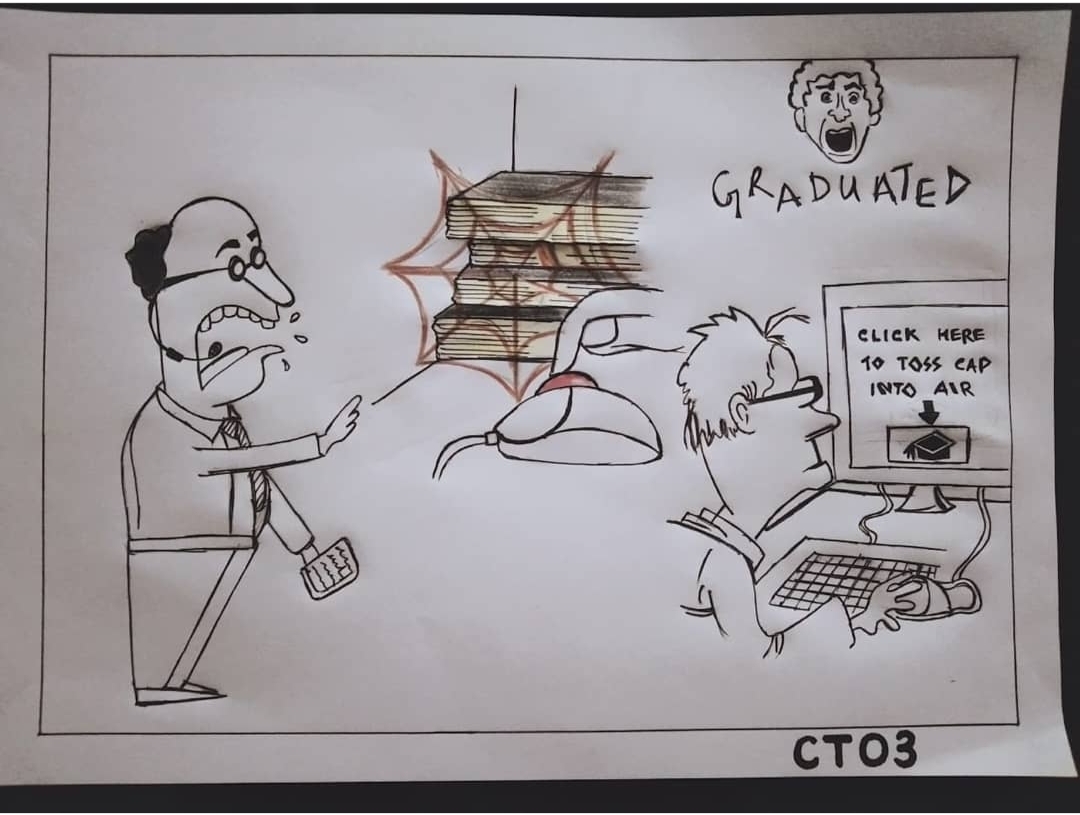 GRADUATED
CLICK HERE
TO TOSS CAP
INTO AIR
CT03